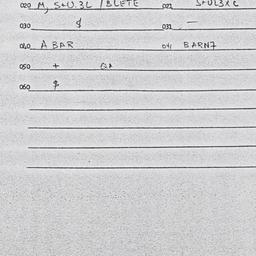 020 M, S+U.3L / BLETE 021 S+UL3XC
030 $ 031 —
040 A BAR 041 BARN7
050 +
060 $